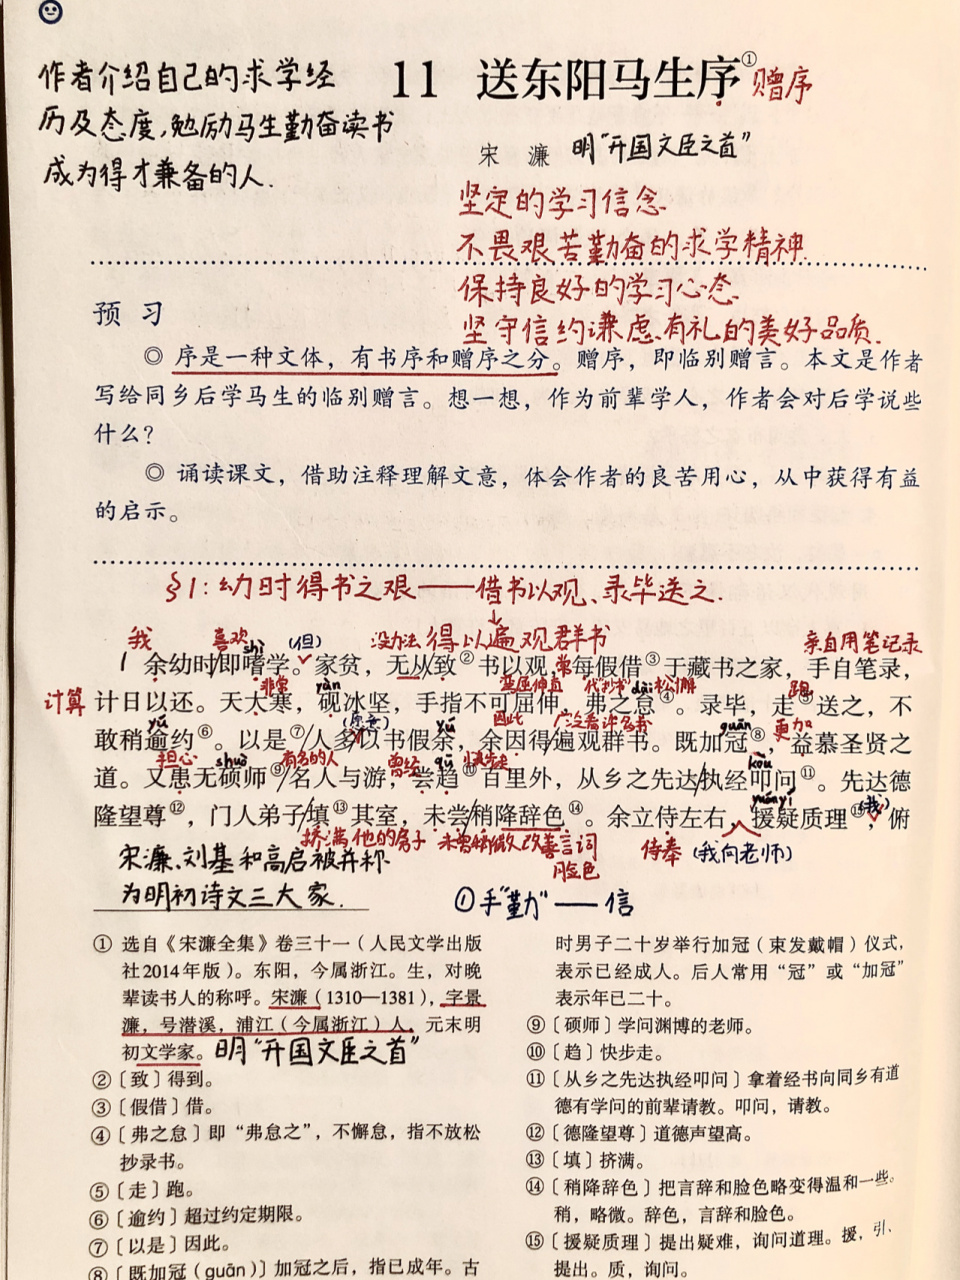 作者介绍自己的求学经
历及态度,勉励马生勤奋读书
成为得才兼备的人.
11 送东阳马生序① 赠序
宋 濂 明"开国文臣之首"
坚定的学习信念
不畏艰苦勤奋的求学精神.
保持良好的学习心态
坚守信约谦虑.有礼的美好品质.
预 习
◎ 序是一种文体，有书序和赠序之分。赠序，即临别赠言。本文是作者
写给同乡后学马生的临别赠言。想一想，作为前辈学人，作者会对后学说些
什么？
◎ 诵读课文，借助注释理解文意，体会作者的良苦用心，从中获得有益
的启示。
§1:幼时得书之艰——借书以观、录毕送之.
我 喜欢 shì (但) 没办法 得以遍观群书 亲自用笔记录
1 余幼时/即嗜学。家贫，无从致②书以观，常每假借③于藏书之家，手自笔录，
计算 非常 yàn 弯屈伸直 dài 松懈 跑
计日以还。天大寒，砚冰坚，手指不可屈伸，弗之怠④。录毕，走⑤送之，不
yú yú 因此 广泛看许多书 guān 更加
敢稍逾约⑥。以是⑦/人多以书假余，余因得/遍观群书。既加冠⑧，益慕圣贤之
担心 shuò 有名的人 曾经 qū kòu
道。又患无硕师⑨/名人与游，尝趋⑩百里外，从乡之先达/执经叩问⑪。先达德
yuányí (我)
隆望尊⑫，门人弟子/填⑬其室，未尝/稍降辞色⑭。余立侍左右，援疑质理⑮，俯
挤满他的房子 未曾稍微改善言词 脸色 侍奉 (我向老师)
宋濂、刘基和高启被并称
为明初诗文三大家.
①手"勤"——信
① 选自《宋濂全集》卷三十一（人民文学出版
社2014年版）。东阳，今属浙江。生，对晚
辈读书人的称呼。宋濂（1310—1381），字景
濂，号潜溪，浦江（今属浙江）人，元末明
初文学家。明"开国文臣之首"
②〔致〕得到。
③〔假借〕借。
④〔弗之怠〕即“弗怠之”，不懈怠，指不放松
抄录书。
⑤〔走〕跑。
⑥〔逾约〕超过约定期限。
⑦〔以是〕因此。
⑧〔既加冠（guān）〕加冠之后，指已成年。古
时男子二十岁举行加冠（束发戴帽）仪式，
表示已经成人。后人常用“冠”或“加冠”
表示年已二十。
⑨〔硕师〕学问渊博的老师。
⑩〔趋〕快步走。
⑪〔从乡之先达执经叩问〕拿着经书向同乡有道
德有学问的前辈请教。叩问，请教。
⑫〔德隆望尊〕道德声望高。
⑬〔填〕挤满。
⑭〔稍降辞色〕把言辞和脸色略变得温和一些。
稍，略微。辞色，言辞和脸色。
⑮〔援疑质理〕提出疑难，询问道理。援，引、
提出。质，询问。